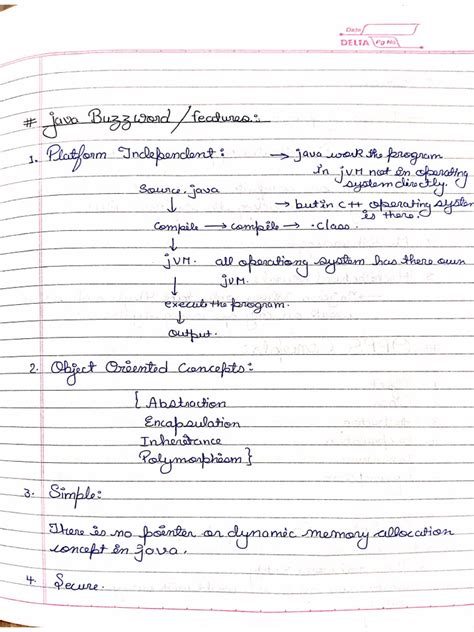 Date
DELTA Pg No
# java Buzzword / features:
1. Platform Independent: → java work the program
in JVM not in operating
system directly.
Source.java
→ but in C++ operating system
is there.
↓
compile → compile → .class.
↓
JVM. all operationg system has there own
JVM.
↓
execute the program.
↓
output.
2. Object Oriented Concepts:
{ Abstraction
Encapsulation
Inheritance
Polymorphism }
3. Simple:
There is no pointer or dynamic memory allocation
concept in java.
4. Secure.